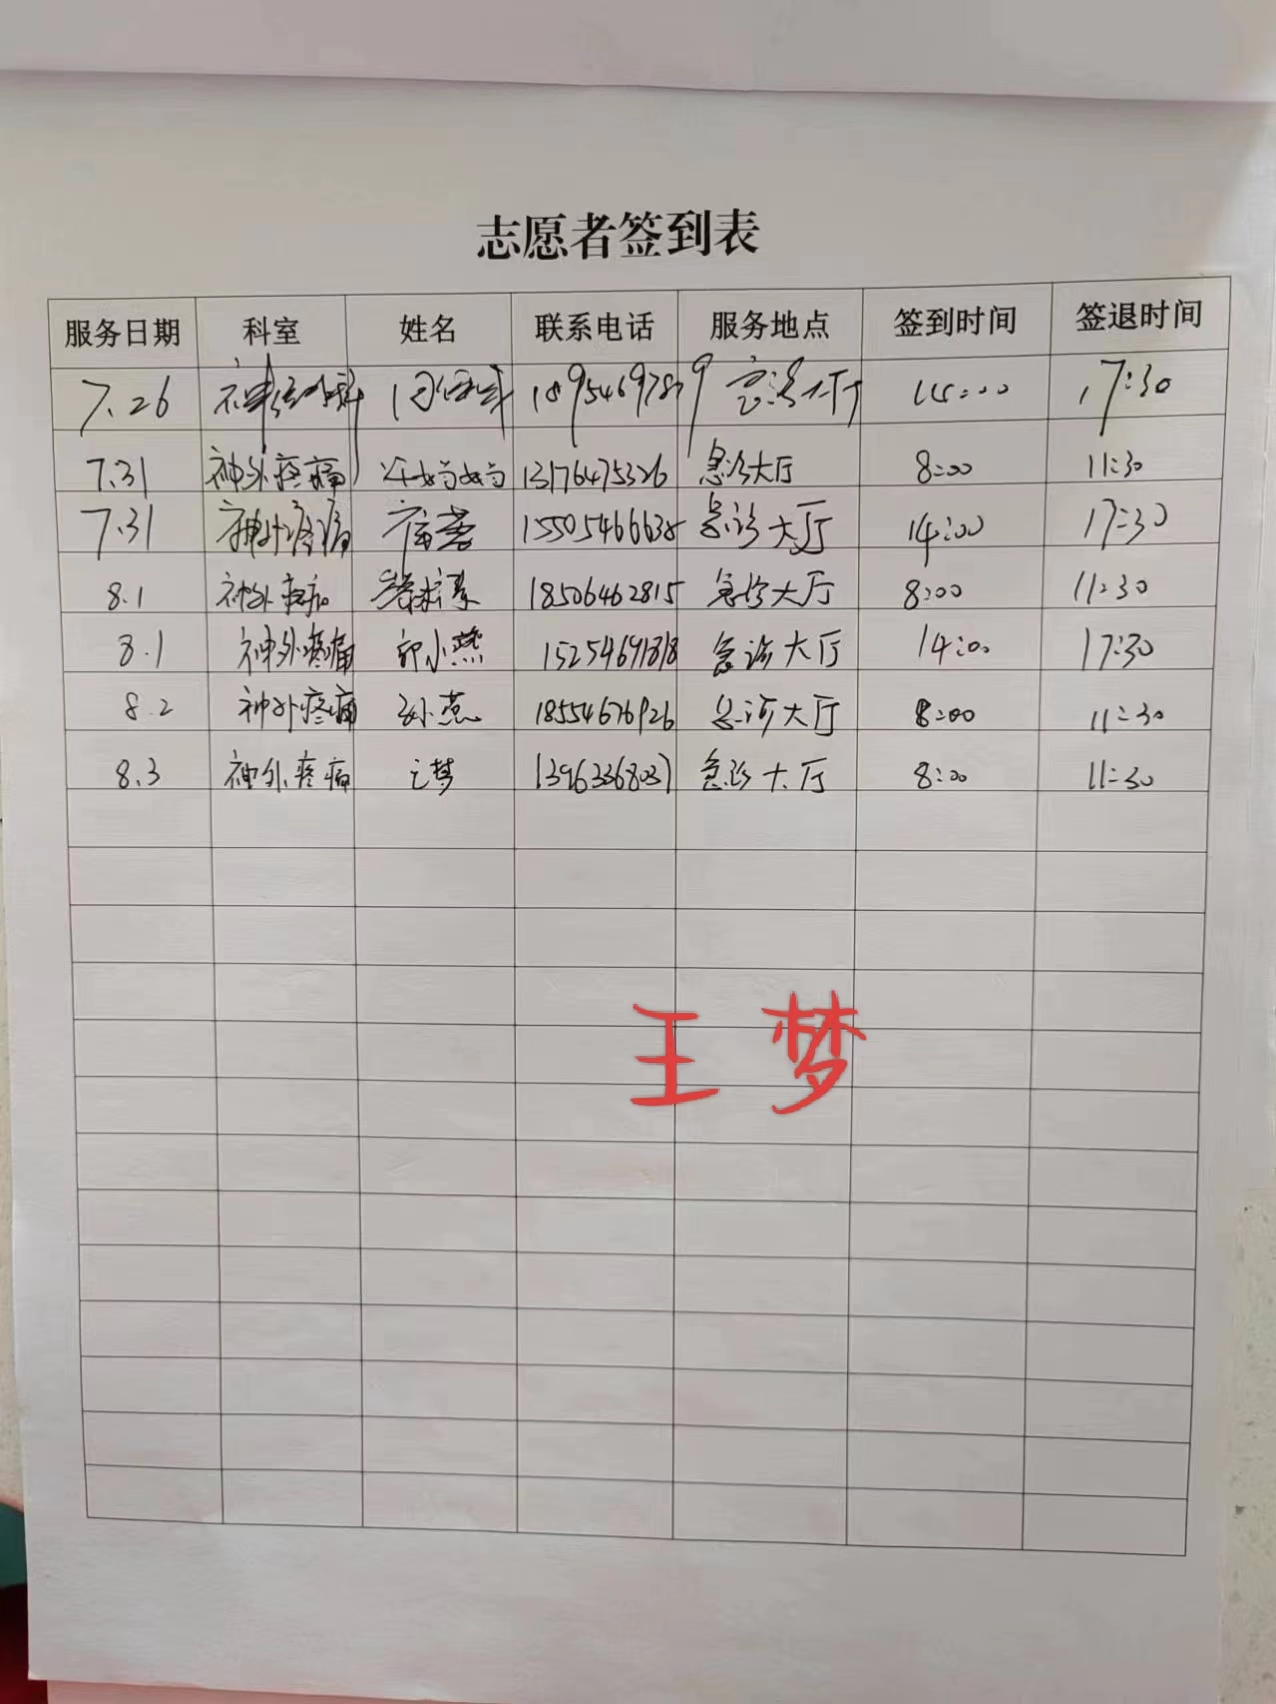 志愿者签到表
服务日期 科室 姓名 联系电话 服务地点 签到时间 签退时间
7.26 急诊大厅 17:30
7.31 神外疼痛 13176475326 急诊大厅 8:00 11:30
7.31 神外疼痛 15505466638 急诊大厅 14:00 17:30
8.1 神外疼痛 18506462815 急诊大厅 8:00 11:30
8.1 神外疼痛 郭小燕 15254691818 急诊大厅 14:00 17:30
8.2 神外疼痛 孙燕 18554676926 急诊大厅 8:00 11:30
8.3 神外疼痛 王梦 急诊大厅 8:00 11:30
王梦